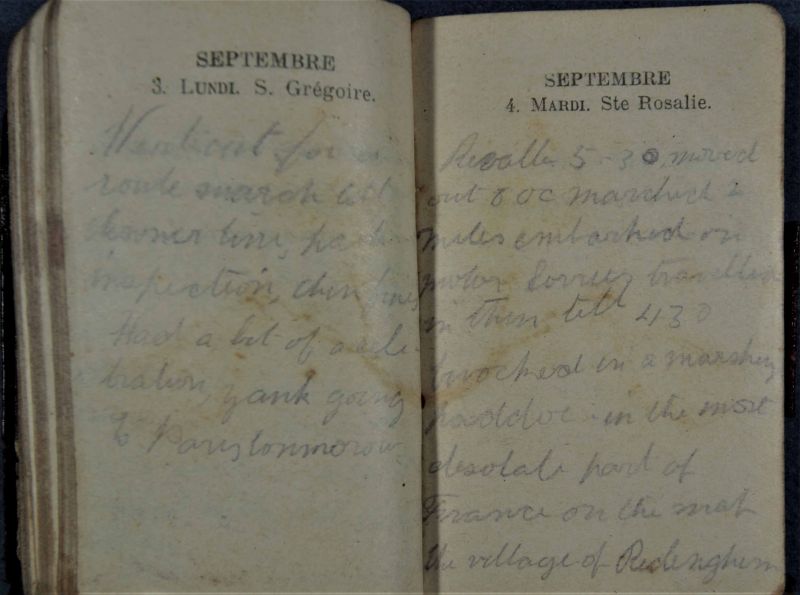 SEPTEMBRE
3. LUNDI. S. Grégoire.
Went out for a
route march till
dinner time, pack
inspection,
Had a bit of a cele-
bration, yank going
to Paris tonmorow
SEPTEMBRE
4. MARDI. Ste Rosalie.
Revalle 5-30, moved
out 8 oc marched 2
miles embarked on
motor lorries travelled
in them till 430
in a marshey
paddoc in the most
desolate part of
France on the map
the village of